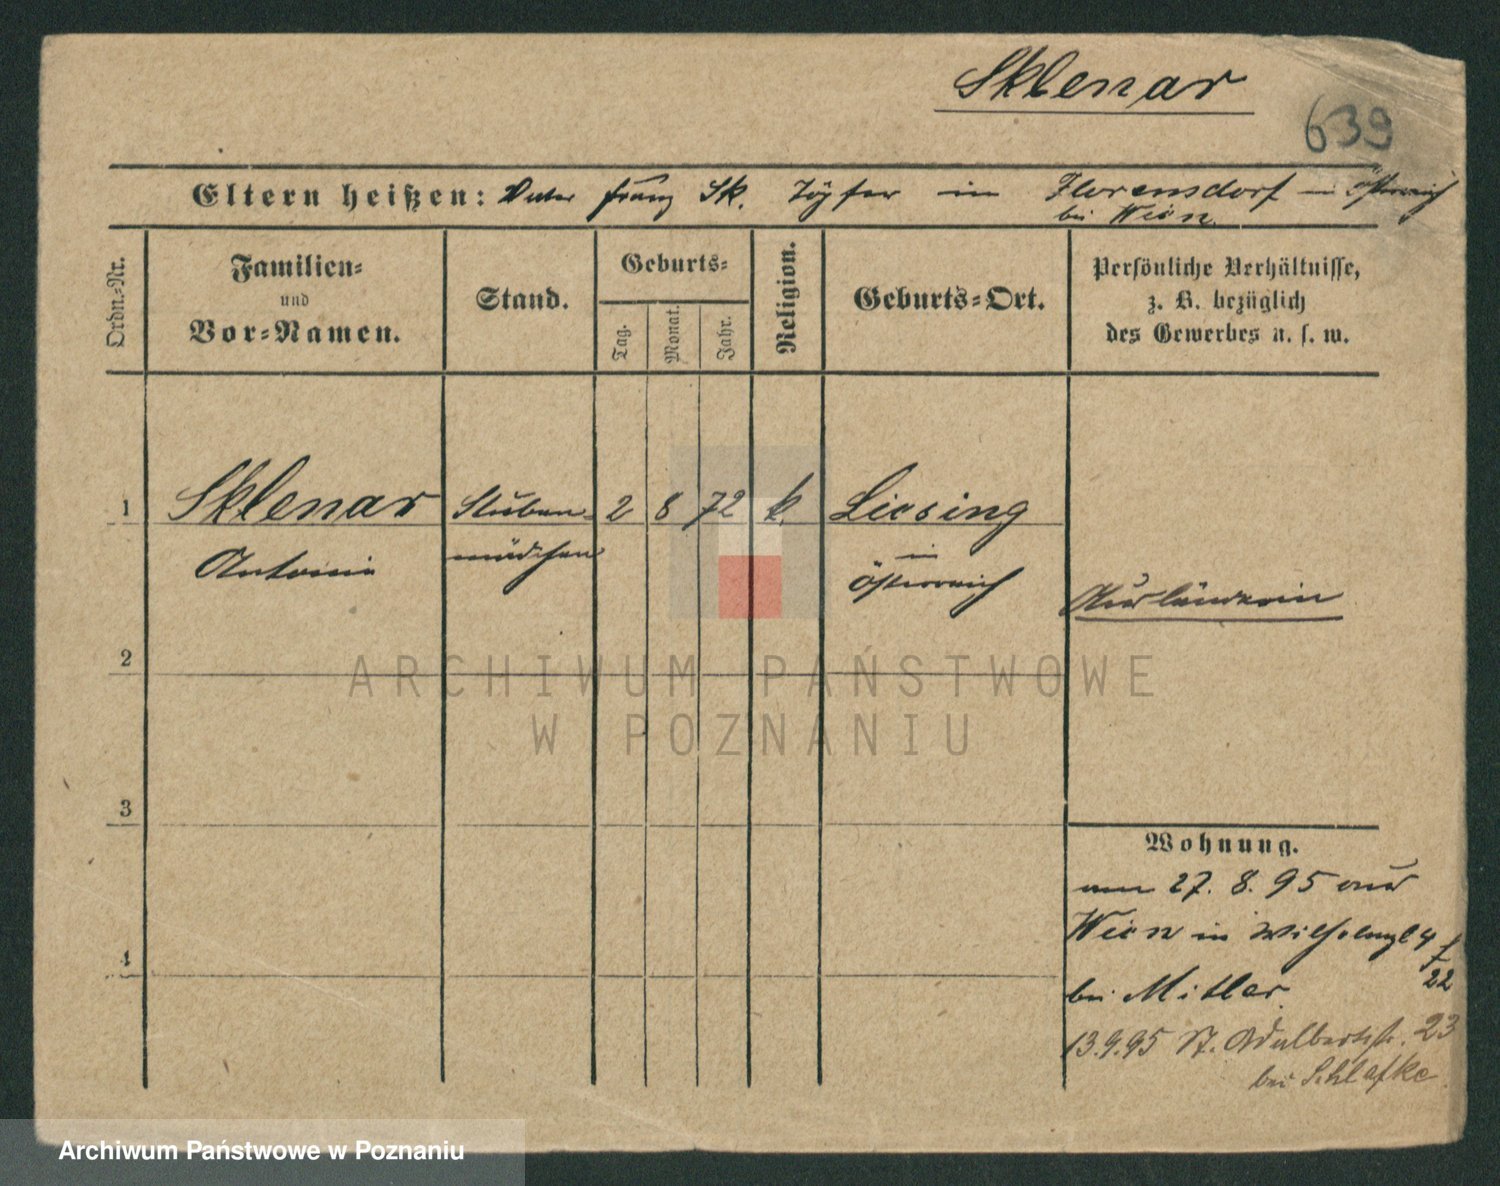 Sklenar
639
Eltern heißen: Vater Franz Sk. Töpfer in Florensdorf in Österreich
bei Wien.
Ordn.-Nr.
Familien-
und
Vor-Namen.
Stand.
Geburts-
Tag.
Monat.
Jahr.
Religion.
Geburts-Ort.
Persönliche Verhältnisse,
z. B. bezüglich
des Gewerbes u. s. w.
1 Sklenar Stuben- 2 8 72 k. Liesing
Antonie mädchen in
Österreich
Ausländerin
2
3
4
Wohnung.
am 27. 8. 95 aus
Wien in 4
22
bei Mitler
13.9.95 St. Adalbertstr. 23
bei Schlafke
ARCHIWUM PAŃSTWOWE
W POZNANIU
Archiwum Państwowe w Poznaniu